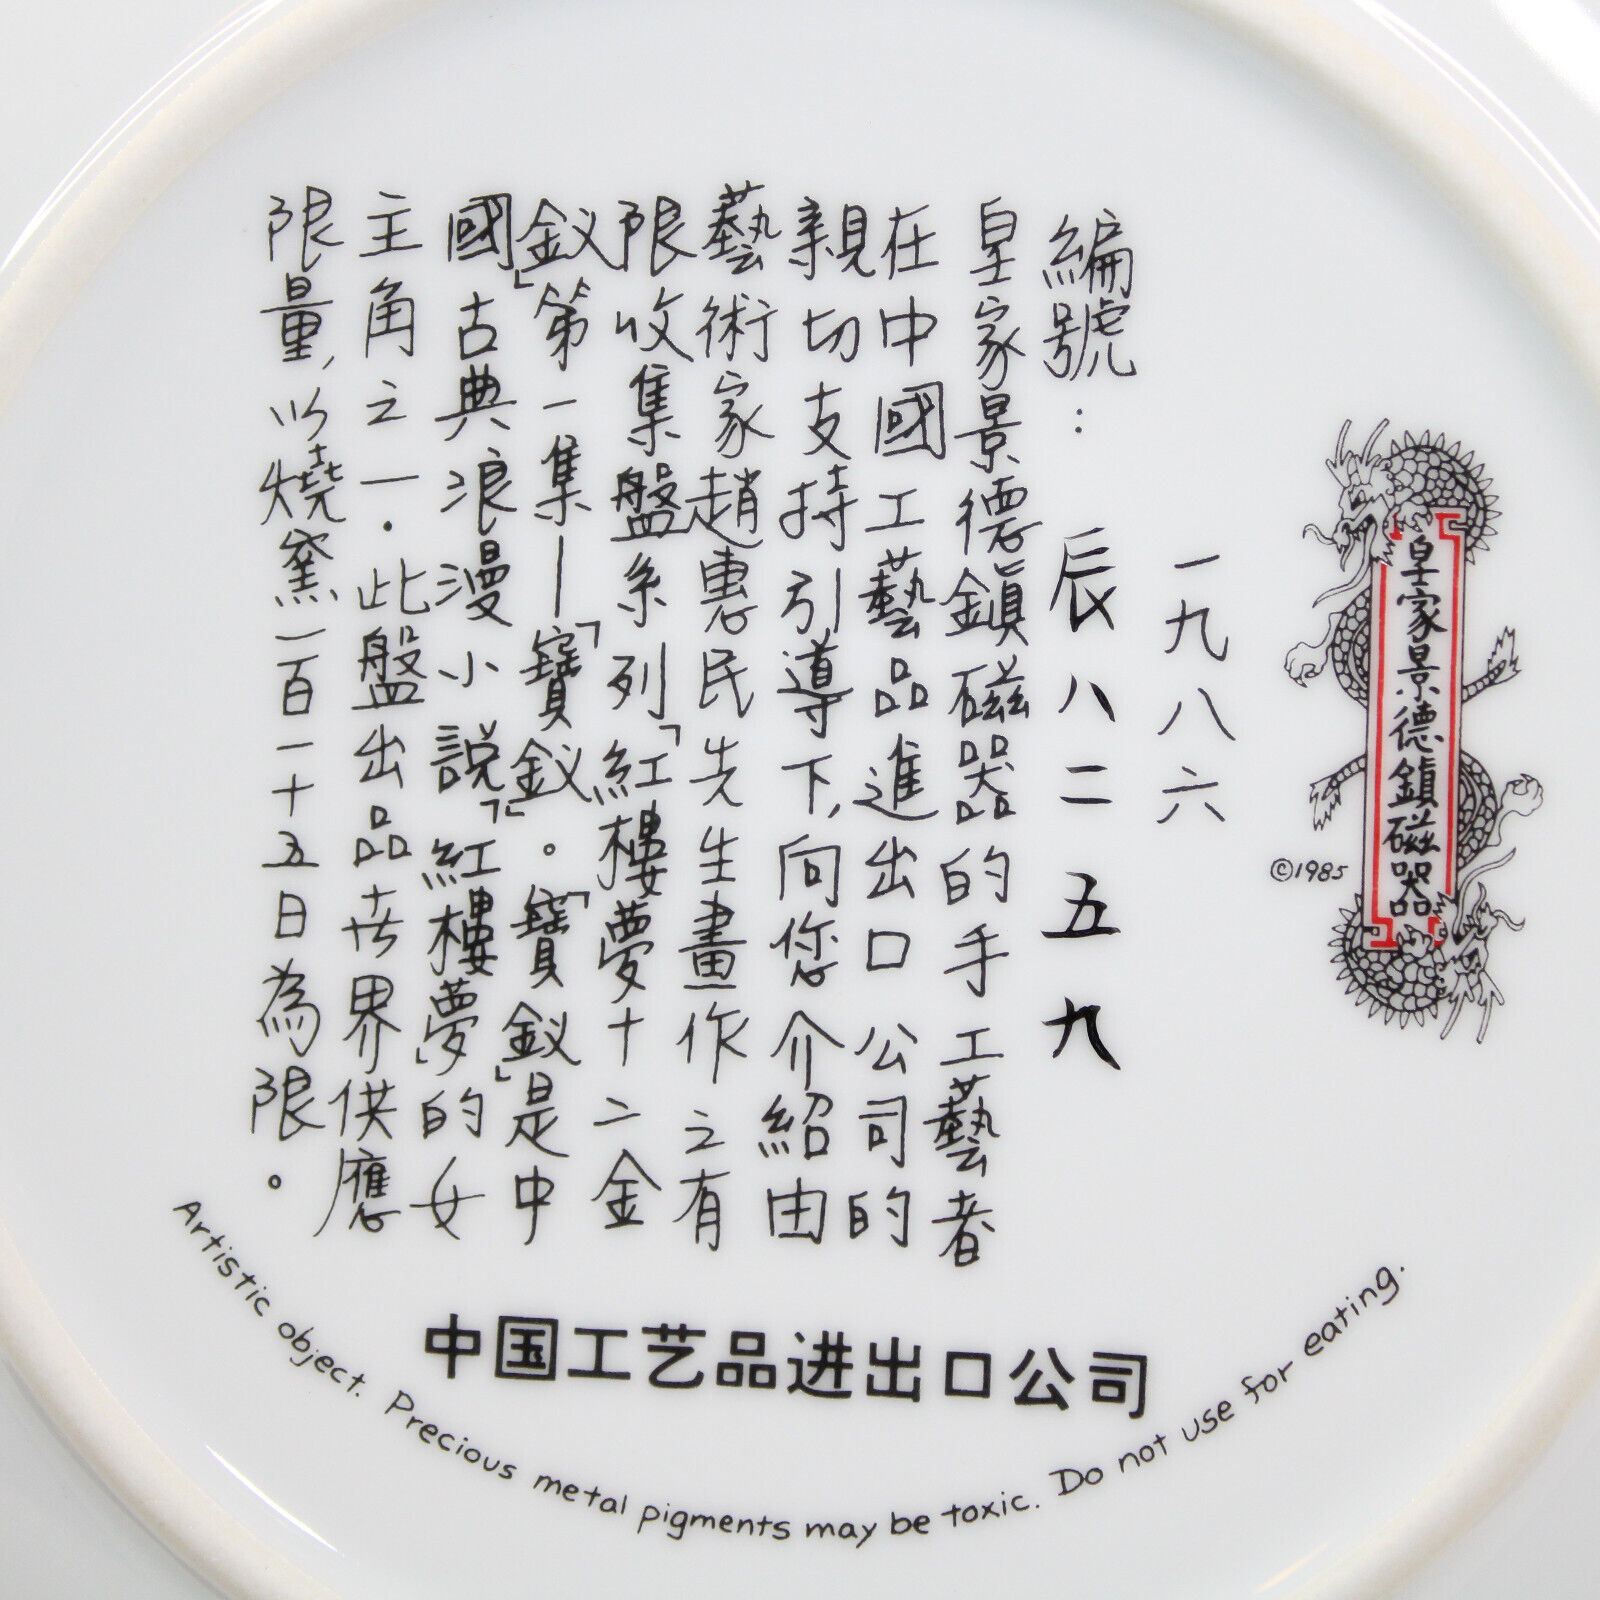 皇家景德鎮磁器
©1985
一九八六
編號：辰八二五九
皇家景德鎮磁器的手工藝者
在中國工藝品進出口公司的
親切支持引導下，向您介紹由
藝術家趙惠民先生畫作之有
限收集盤系列「紅樓夢十二金
釵」第一集—「寶釵」。「寶釵」是中
國古典浪漫小說「紅樓夢」的女
主角之一．此盤出品世界供應
限量，以燒窯一百一十五日為限。
中国工艺品进出口公司
Artistic object. Precious metal pigments may be toxic. Do not use for eating.